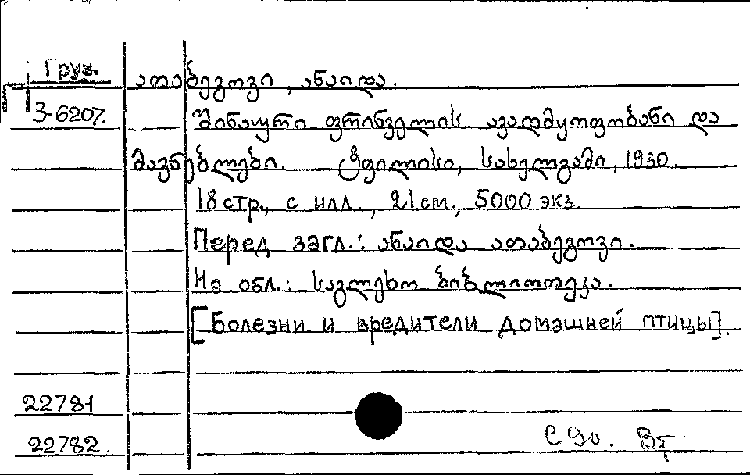 Груз.
ათაბეგოვი, ანაიდა.
3-6207.
შინაური ფრინველის ავადმყოფობანი და
მავნებლები. ტფილისი, სახელგამი, 1930.
18 стр., с илл., 21 см., 5000 экз.
Перед загл.: ანაიდა ათაბეგოვი.
На обл.: საგლეხო ბიბლიოთეკა.
[Болезни и вредители домашней птицы].
22781
22782